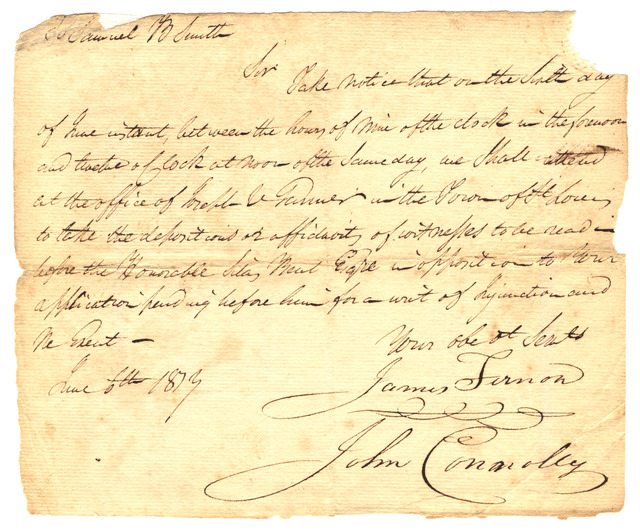 To Samuel B Smith
Sir Take notice that on the Sixth day
of June instant between the hours of Nine of the clock in the forenoon
and twelve oClock at noon of the Same day, we Shall attend
at the office of Joseph V Garnier in the Town of St Louis
to take the depositions or affidavits of witnesses to be read in
before the Honorable Silas Bent Esqre in opposition to Your
application pending before him for a writ of Injunction and
Ne Exeat —
June 6th 1817
Your obe dt Servts
James Ternon
John Connolly